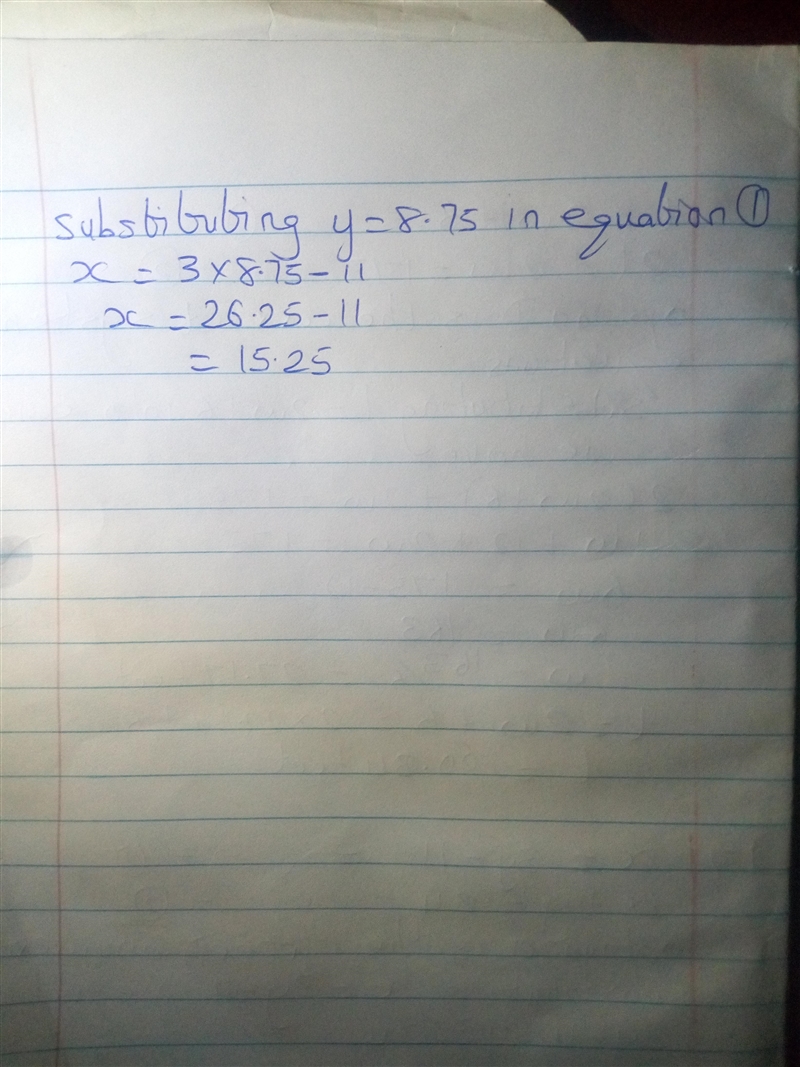 substituting y = 8.75 in equation ①
x = 3 × 8.75 - 11
x = 26.25 - 11
= 15.25